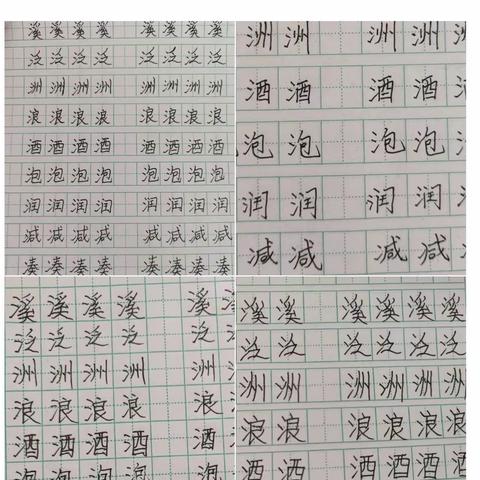 溪溪溪溪 溪溪溪溪
泛泛泛泛 泛泛泛泛
洲洲洲洲 洲洲洲洲
浪浪浪浪 浪浪浪浪
酒酒酒酒 酒酒酒酒
泡泡泡泡 泡泡泡泡
润润润润 润润润润
减减减减 减减减减
凑凑凑凑 凑凑凑凑
洲洲 洲洲
酒酒 酒酒
泡泡 泡泡
润润 润润
减减 减减
溪溪溪溪 溪溪
泛泛泛泛 泛泛
洲洲洲洲 洲
浪浪浪浪 浪
酒酒酒酒 酒
泡泡泡泡 泡
溪溪 溪溪溪溪
泛泛 泛泛泛泛
洲洲 洲洲洲洲
浪浪 浪浪浪浪
酒酒 酒酒酒酒